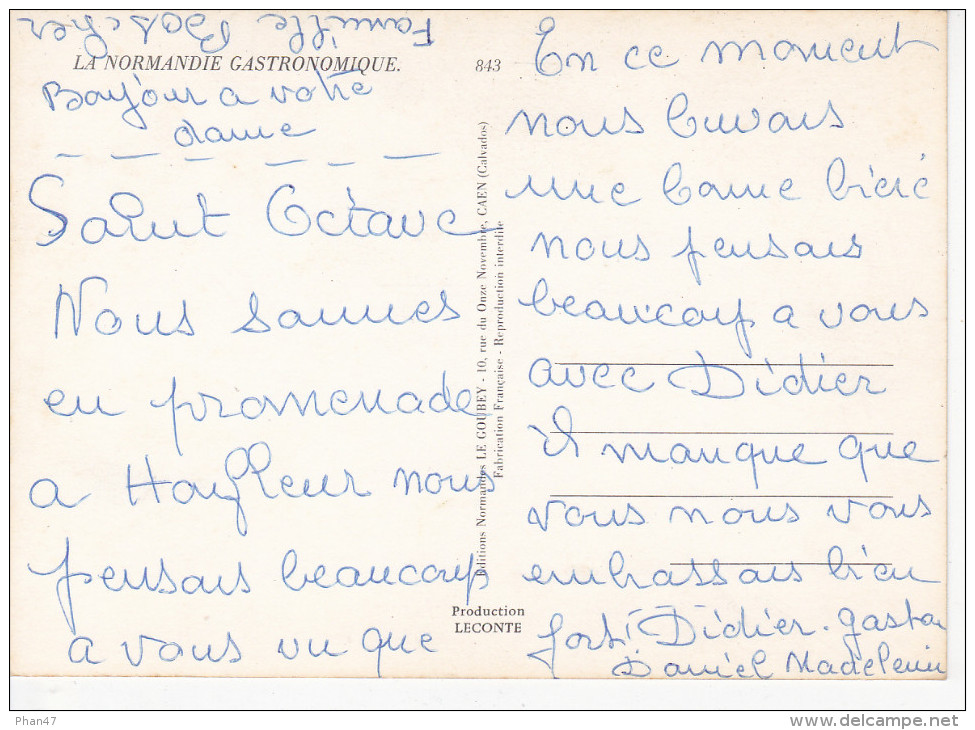 Famille Boscher
LA NORMANDIE GASTRONOMIQUE.
843
Bonjour a votre
dame
Salut Octave
Nous sommes
en promenade
a Honfleur nous
pensons beaucoup
a vous vu que
Editions Normandes LE GOUBEY - 10, rue du Onze Novembre, CAEN (Calvados)
Fabrication Française - Reproduction interdite
Production
LECONTE
En ce moment
nous buvons
une bonne bière
nous pensons
beaucoup a vous
avec Didier
il manque que
vous nous vous
embrassons bien
fort Didier. gaston
Daniel Madeleine
Phan47
www.delcampe.net